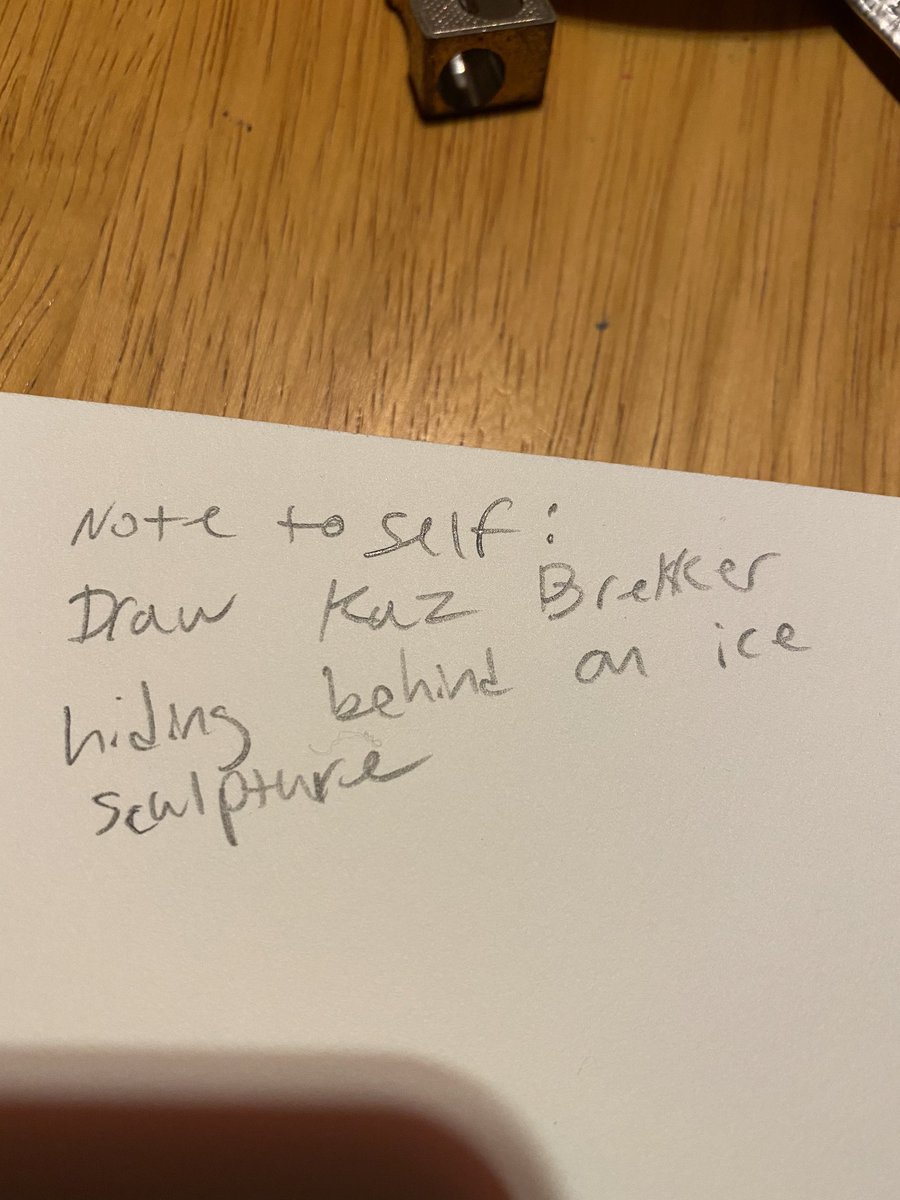 Note to self:
Draw Kaz Brekker
hiding behind an ice
sculpture